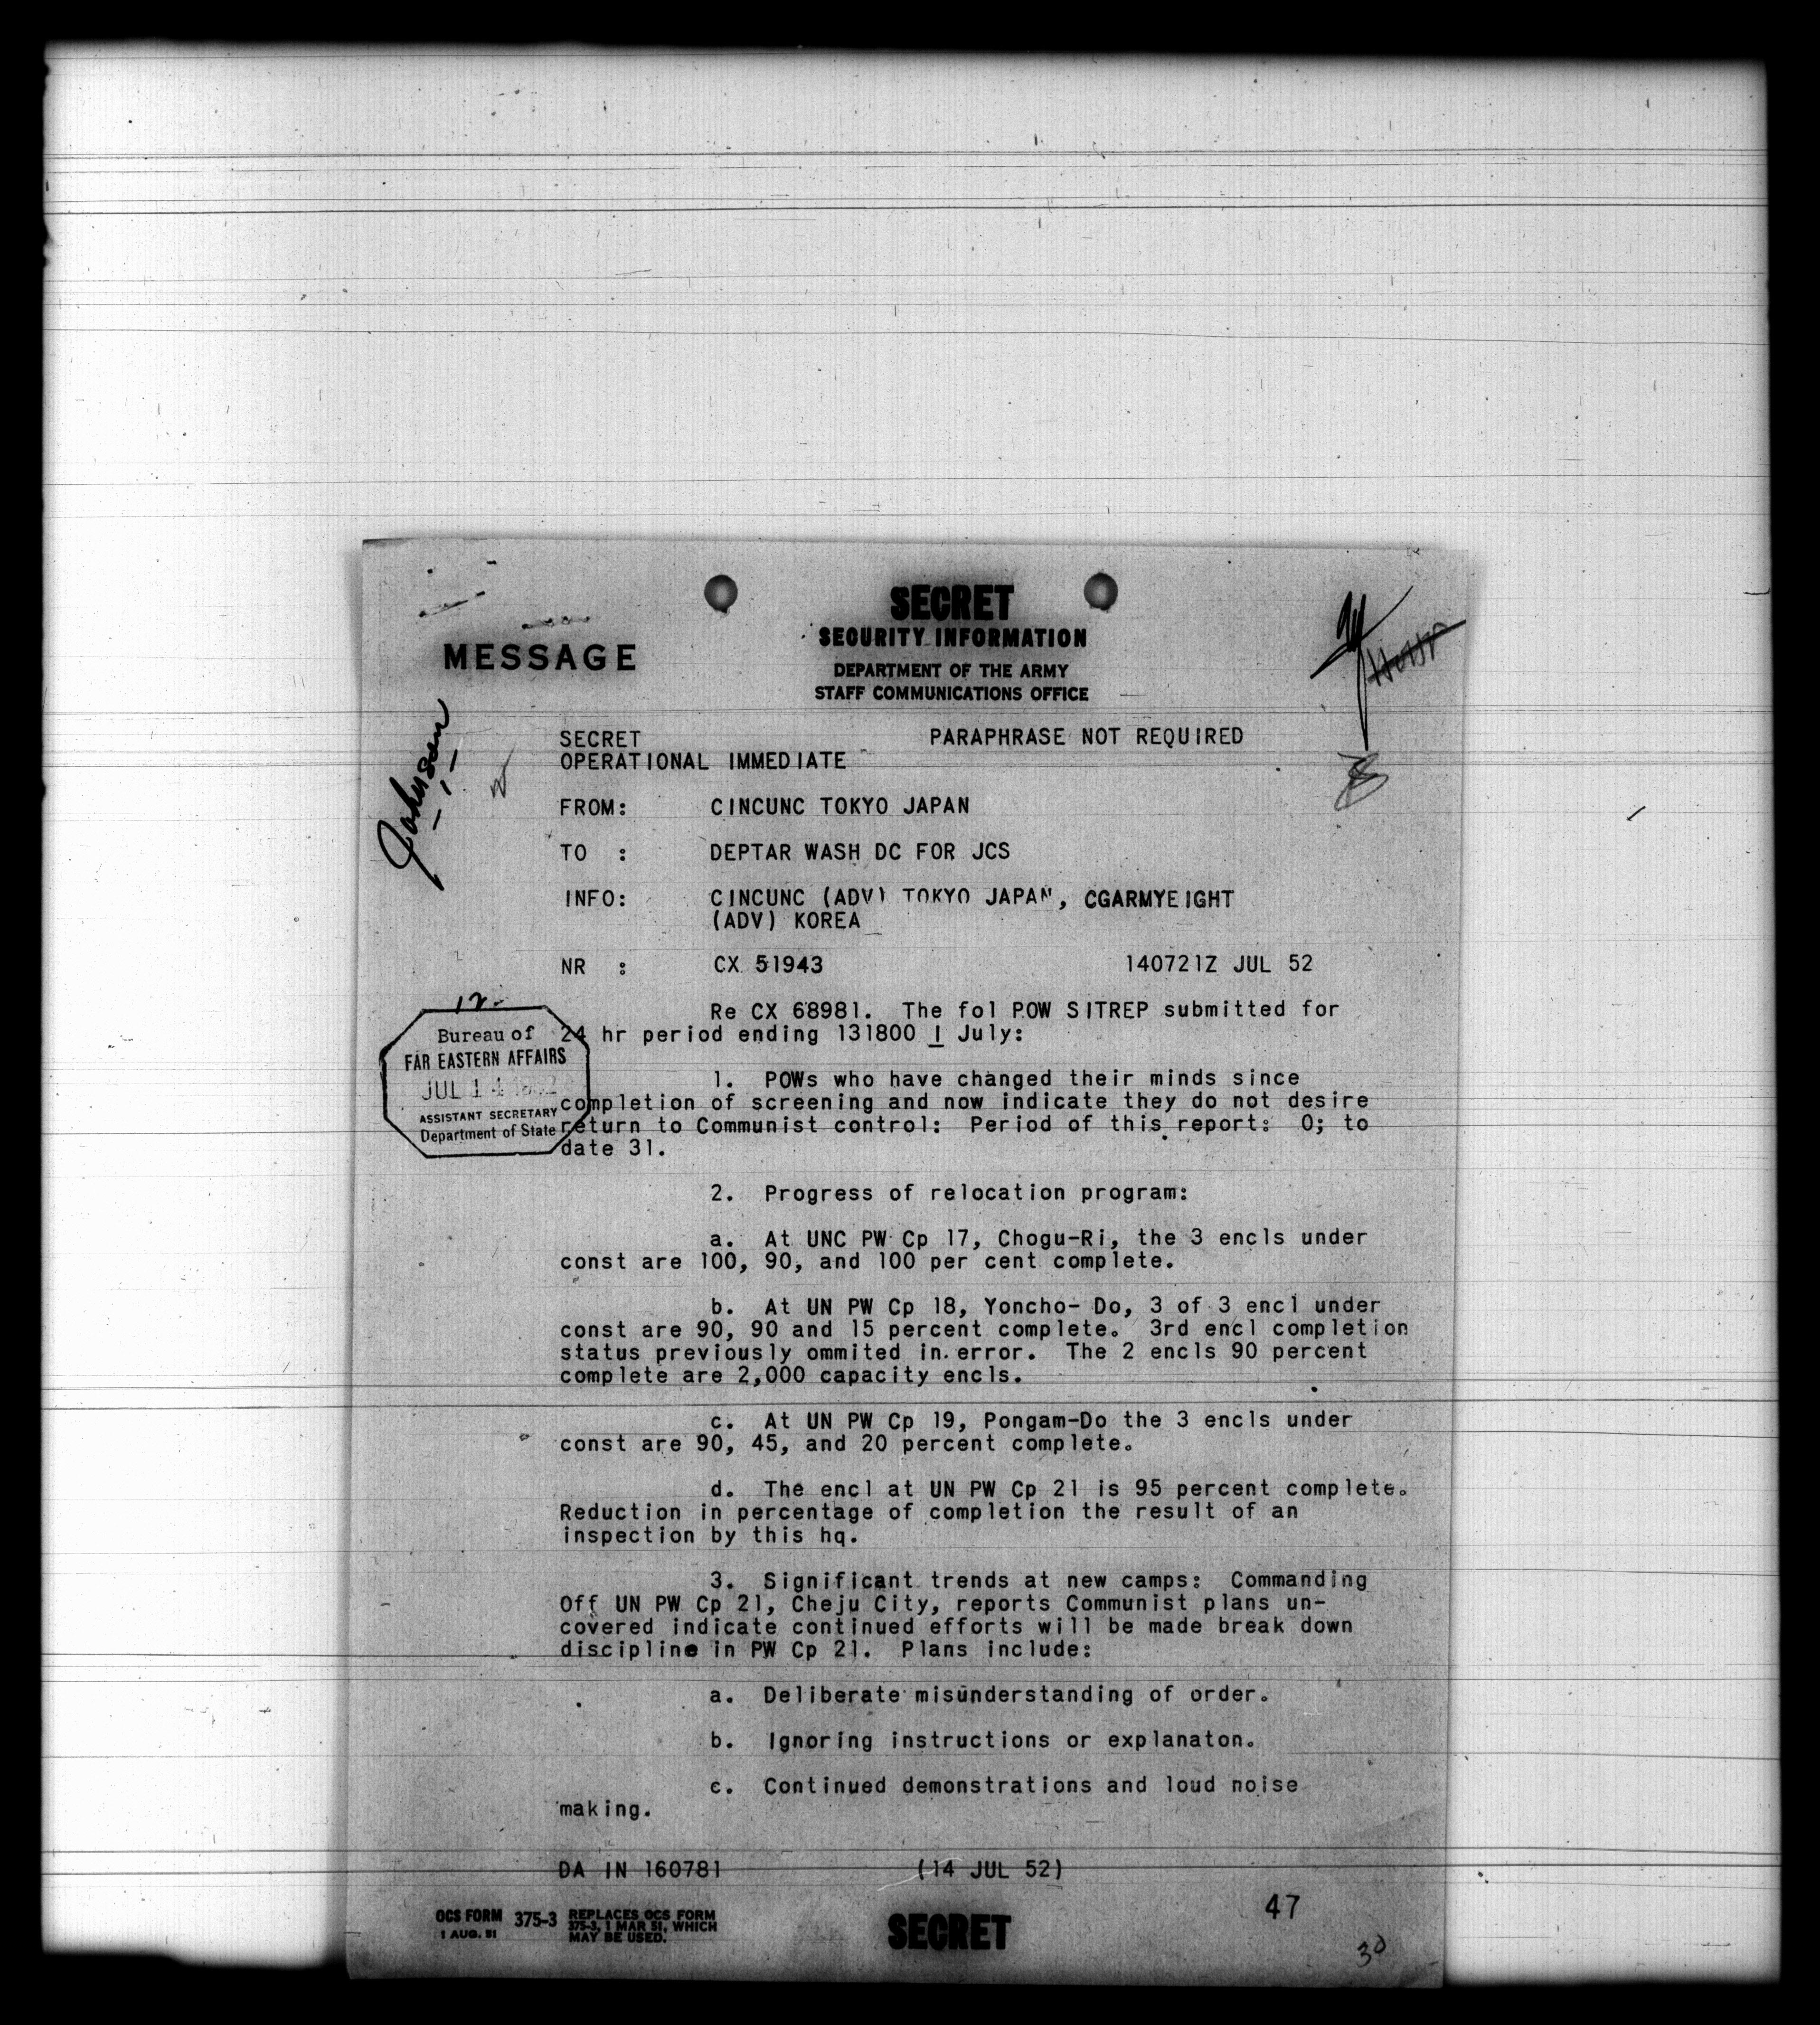 SECRET
SECURITY INFORMATION
MESSAGE
DEPARTMENT OF THE ARMY
STAFF COMMUNICATIONS OFFICE
Johnson
SECRET PARAPHRASE NOT REQUIRED
OPERATIONAL IMMEDIATE
FROM: CINCUNC TOKYO JAPAN
TO : DEPTAR WASH DC FOR JCS
INFO: CINCUNC (ADV) TOKYO JAPAN, CGARMYEIGHT
(ADV) KOREA
NR : CX 51943 140721Z JUL 52
Re CX 68981. The fol POW SITREP submitted for
24 hr period ending 131800 I July:
12
Bureau of
FAR EASTERN AFFAIRS
JUL 14 1952
ASSISTANT SECRETARY
Department of State
1. POWs who have changed their minds since
completion of screening and now indicate they do not desire
return to Communist control: Period of this report: 0; to
date 31.
2. Progress of relocation program:
a. At UNC PW Cp 17, Chogu-Ri, the 3 encls under
const are 100, 90, and 100 per cent complete.
b. At UN PW Cp 18, Yoncho- Do, 3 of 3 encl under
const are 90, 90 and 15 percent complete. 3rd encl completion
status previously ommited in error. The 2 encls 90 percent
complete are 2,000 capacity encls.
c. At UN PW Cp 19, Pongam-Do the 3 encls under
const are 90, 45, and 20 percent complete.
d. The encl at UN PW Cp 21 is 95 percent complete.
Reduction in percentage of completion the result of an
inspection by this hq.
3. Significant trends at new camps: Commanding
Off UN PW Cp 21, Cheju City, reports Communist plans un-
covered indicate continued efforts will be made break down
discipline in PW Cp 21. Plans include:
a. Deliberate misunderstanding of order.
b. Ignoring instructions or explanaton.
c. Continued demonstrations and loud noise
making.
DA IN 160781 (14 JUL 52)
OCS FORM 375-3 REPLACES OCS FORM
1 AUG. 51 375-3, 1 MAR 51, WHICH
MAY BE USED.
SECRET
47
30